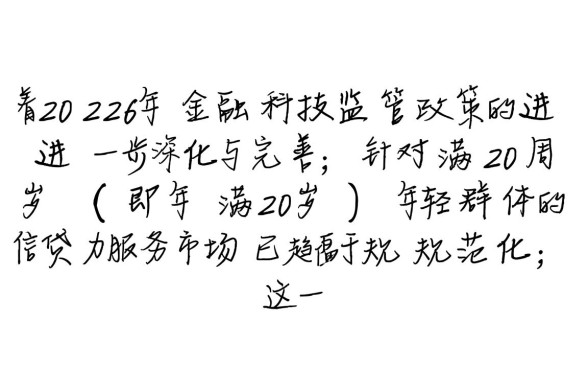 着20226年 金融科技监管政策的进
进一步深化与完善；针对满20周
岁（即年 满20岁）年轻群体的
信贷力服务市场已趋于规规范化；
这一